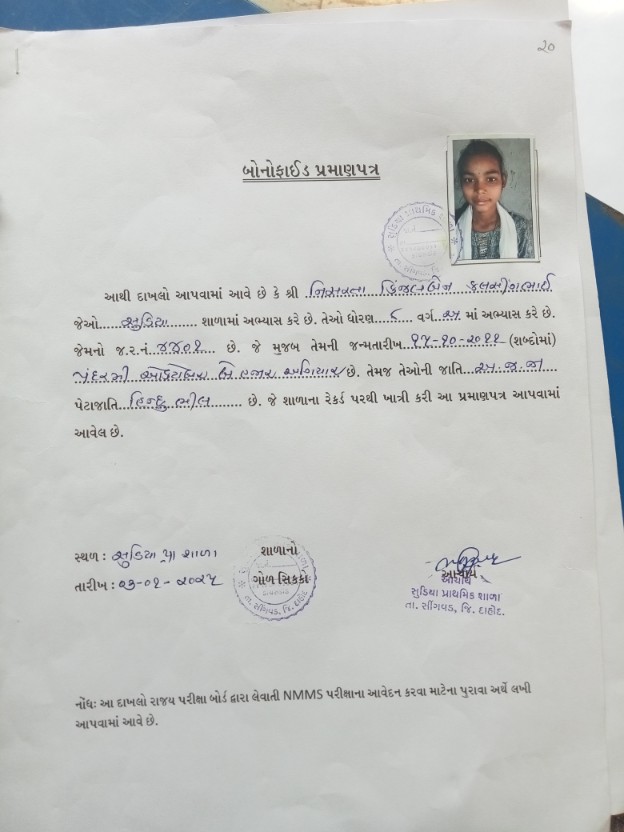 ૨૦
બોનોફાઈડ પ્રમાણપત્ર
આથી દાખલો આપવામાં આવે છે કે શ્રી નિસરતા કિંજલબેન કલસીંગભાઈ
જેઓ સુડિયા શાળામાં અભ્યાસ કરે છે. તેઓ ધોરણ ૮ વર્ગ અ માં અભ્યાસ કરે છે.
જેમનો જ.ર.નં ૪૪૦૧ છે. જે મુજબ તેમની જન્મતારીખ ૧૫-૧૦-૨૦૧૧ (શબ્દોમાં)
પંદરમી ઓક્ટોબર બે હજાર અગિયાર છે. તેમજ તેઓની જાતિ અ.જ.જા
પેટાજાતિ હિન્દુ ભીલ છે. જે શાળાના રેકર્ડ પરથી ખાત્રી કરી આ પ્રમાણપત્ર આપવામાં
આવેલ છે.
સ્થળ : સુડિયા પ્રા શાળા
તારીખ : ૨૩-૦૧-૨૦૨૫
શાળાનો
ગોળ સિક્કો
તા. સીંગવડ, જિ. દાહોદ
આચાર્ય
આચાર્ય
સુડિયા પ્રાથમિક શાળા
તા. સીંગવડ, જિ. દાહોદ.
નોંધઃ આ દાખલો રાજય પરીક્ષા બોર્ડ દ્વારા લેવાતી NMMS પરીક્ષાના આવેદન કરવા માટેના પુરાવા અર્થે લખી
આપવામાં આવે છે.